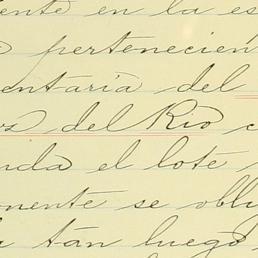 ente en la es
pertenecien
entaria del
os del Rio c
nda el lote
onente se obli
tán luego